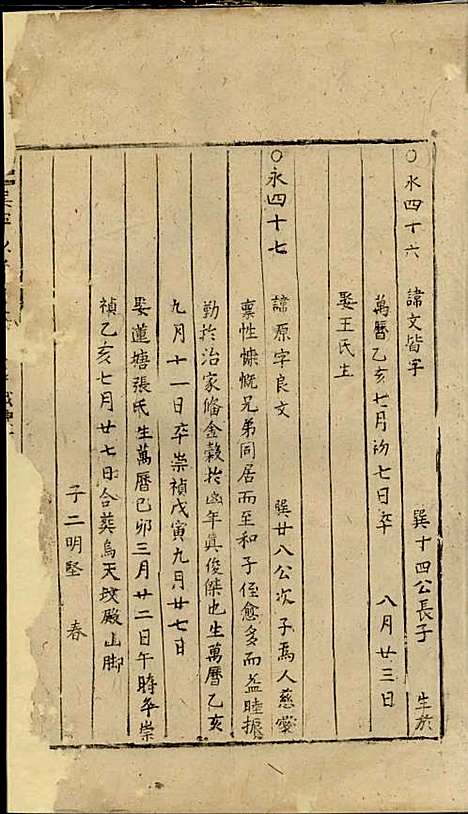 ○永四十六 諱文皆字 巽十四公長子 生於
萬曆乙亥七月初七日卒 八月廿三日
娶王氏生
○永四十七 諱原字良文 巽廿八公次子為人慈愛
稟性慷慨兄弟同居而至和子侄愈多而益睦振
勤於治家脩金穀於凶年真俊傑也生萬曆乙亥
九月十一日卒崇禎戊寅九月廿七日
娶蓮塘張氏生萬曆己卯三月廿二日午時卒崇
禎乙亥七月廿七日合葬烏天坟殿山脚
子二明堅 春